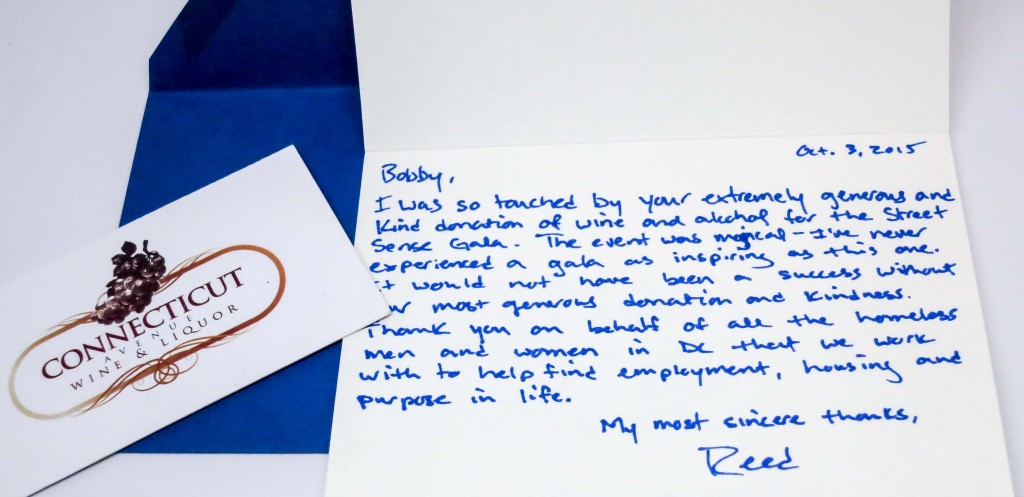 Oct. 3, 2015
Bobby,
I was so touched by your extremely generous and
kind donation of wine and alcohol for the Street
Sense Gala. The event was magical - I've never
experienced a gala as inspiring as this one.
it would not have been a success without
ur most generous donation and kindness.
Thank you on behalf of all the homeless
men and women in DC that we work
with to help find employment, housing and
purpose in life.
My most sincere thanks,
Reed
CONNECTICUT
AVENUE
WINE & LIQUOR